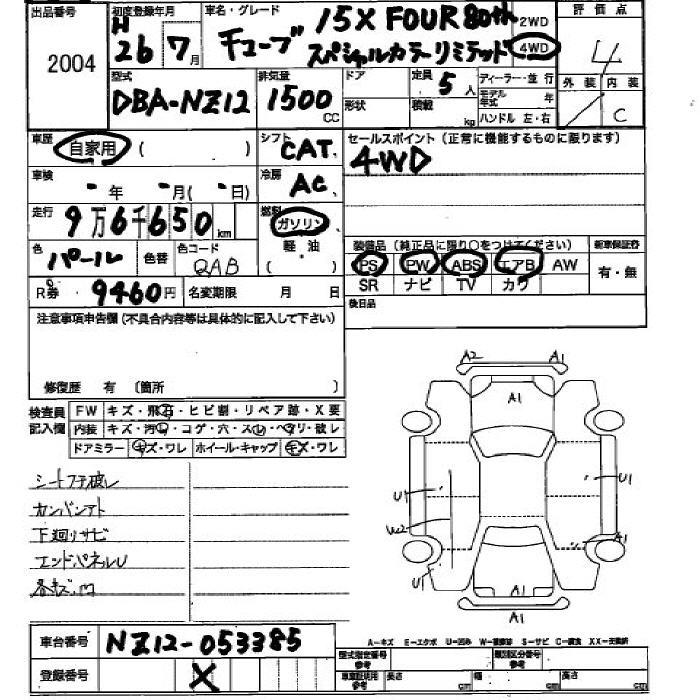 出品番号 初度登録年月 車名・グレード 評価点
2004 H 26年 7月 チューブ 15X FOUR 80th 2WD 4
スペシャルカラーリミテッド 4WD
型式 排気量 ドア 定員 5人 ディーラー・並行 外装 内装
DBA-NZ12 1500CC 形状 積載 kg モデル年式 年 C
ハンドル 左・右
車歴 自家用 ( ) シフト CAT セールスポイント(正常に機能するものに限ります)
4WD
車検 - 年 - 月( - 日) 冷房 AC
走行 9万6千650km 燃料 ガソリン
軽油
( )
色 パール 色替 色コード QAB
装備品(純正品に限り○をつけてください) 新車保証書
PS PW ABS エアB AW 有・無
SR ナビ TV カワ
R券 9460円 名変期限 月 日 後日品
注意事項申告欄(不具合内容等は具体的に記入して下さい)
修復歴 有 (箇所 )
検査員記入欄 FW キズ・飛石・ヒビ割・リペア跡・X要
内装 キズ・汚れ・コゲ・穴・スレ・ヘタリ・破レ
ドアミラー キズ・ワレ ホイール・キャップ キズ・ワレ
シートフチ破レ
下廻りサビ
エンドパネルU
A2 A1
A1
U1 U1
W2
A1
U1
A1
A1
A-キズ E-エクボ U-凹み W-補修跡 S-サビ C-腐食 XX-交換済
車台番号 NZ12-053385
型式指定番号 参考 類別区分番号 参考
登録番号 X
車庫証明用 参考 長さ cm 幅 cm 高さ cm